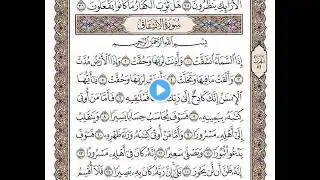 ٱلْأَرَآئِكِ يَنظُرُونَ ۝٣٥ هَلْ ثُوِّبَ ٱلْكُفَّارُ مَا كَانُوا۟ يَفْعَلُونَ ۝٣٦
سُورَةُ الِانشِقَاقِ
بِسْمِ ٱللَّهِ ٱلرَّحْمَٰنِ ٱلرَّحِيمِ
إِذَا ٱلسَّمَآءُ ٱنشَقَّتْ ۝١ وَأَذِنَتْ لِرَبِّهَا وَحُقَّتْ ۝٢ وَإِذَا ٱلْأَرْضُ مُدَّتْ
۝٣ وَأَلْقَتْ مَا فِيهَا وَتَخَلَّتْ ۝٤ وَأَذِنَتْ لِرَبِّهَا وَحُقَّتْ ۝٥ يَٰٓأَيُّهَا
ٱلْإِنسَٰنُ إِنَّكَ كَادِحٌ إِلَىٰ رَبِّكَ فَمُلَٰقِيهِ ۝٦ فَأَمَّا مَنْ أُوتِىَ
كِتَٰبَهُۥ بِيَمِينِهِۦ ۝٧ فَسَوْفَ يُحَاسَبُ حِسَابًا يَسِيرًا ۝٨ وَيَنقَلِبُ
إِلَىٰٓ أَهْلِهِۦ مَسْرُورًا ۝٩ وَأَمَّا مَنْ أُوتِىَ كِتَٰبَهُۥ وَرَآءَ ظَهْرِهِۦ ۝١٠ فَسَوْفَ
يَدْعُوا۟ ثُبُورًا ۝١١ وَيَصْلَىٰ سَعِيرًا ۝١٢ إِنَّهُۥ كَانَ فِىٓ أَهْلِهِۦ مَسْرُورًا ۝١٣
إِنَّهُۥ ظَنَّ أَن لَّن يَحُورَ ۝١٤ بَلَىٰٓ إِنَّ رَبَّهُۥ كَانَ بِهِۦ بَصِيرًا ۝١٥ فَلَآ أُقْسِمُ